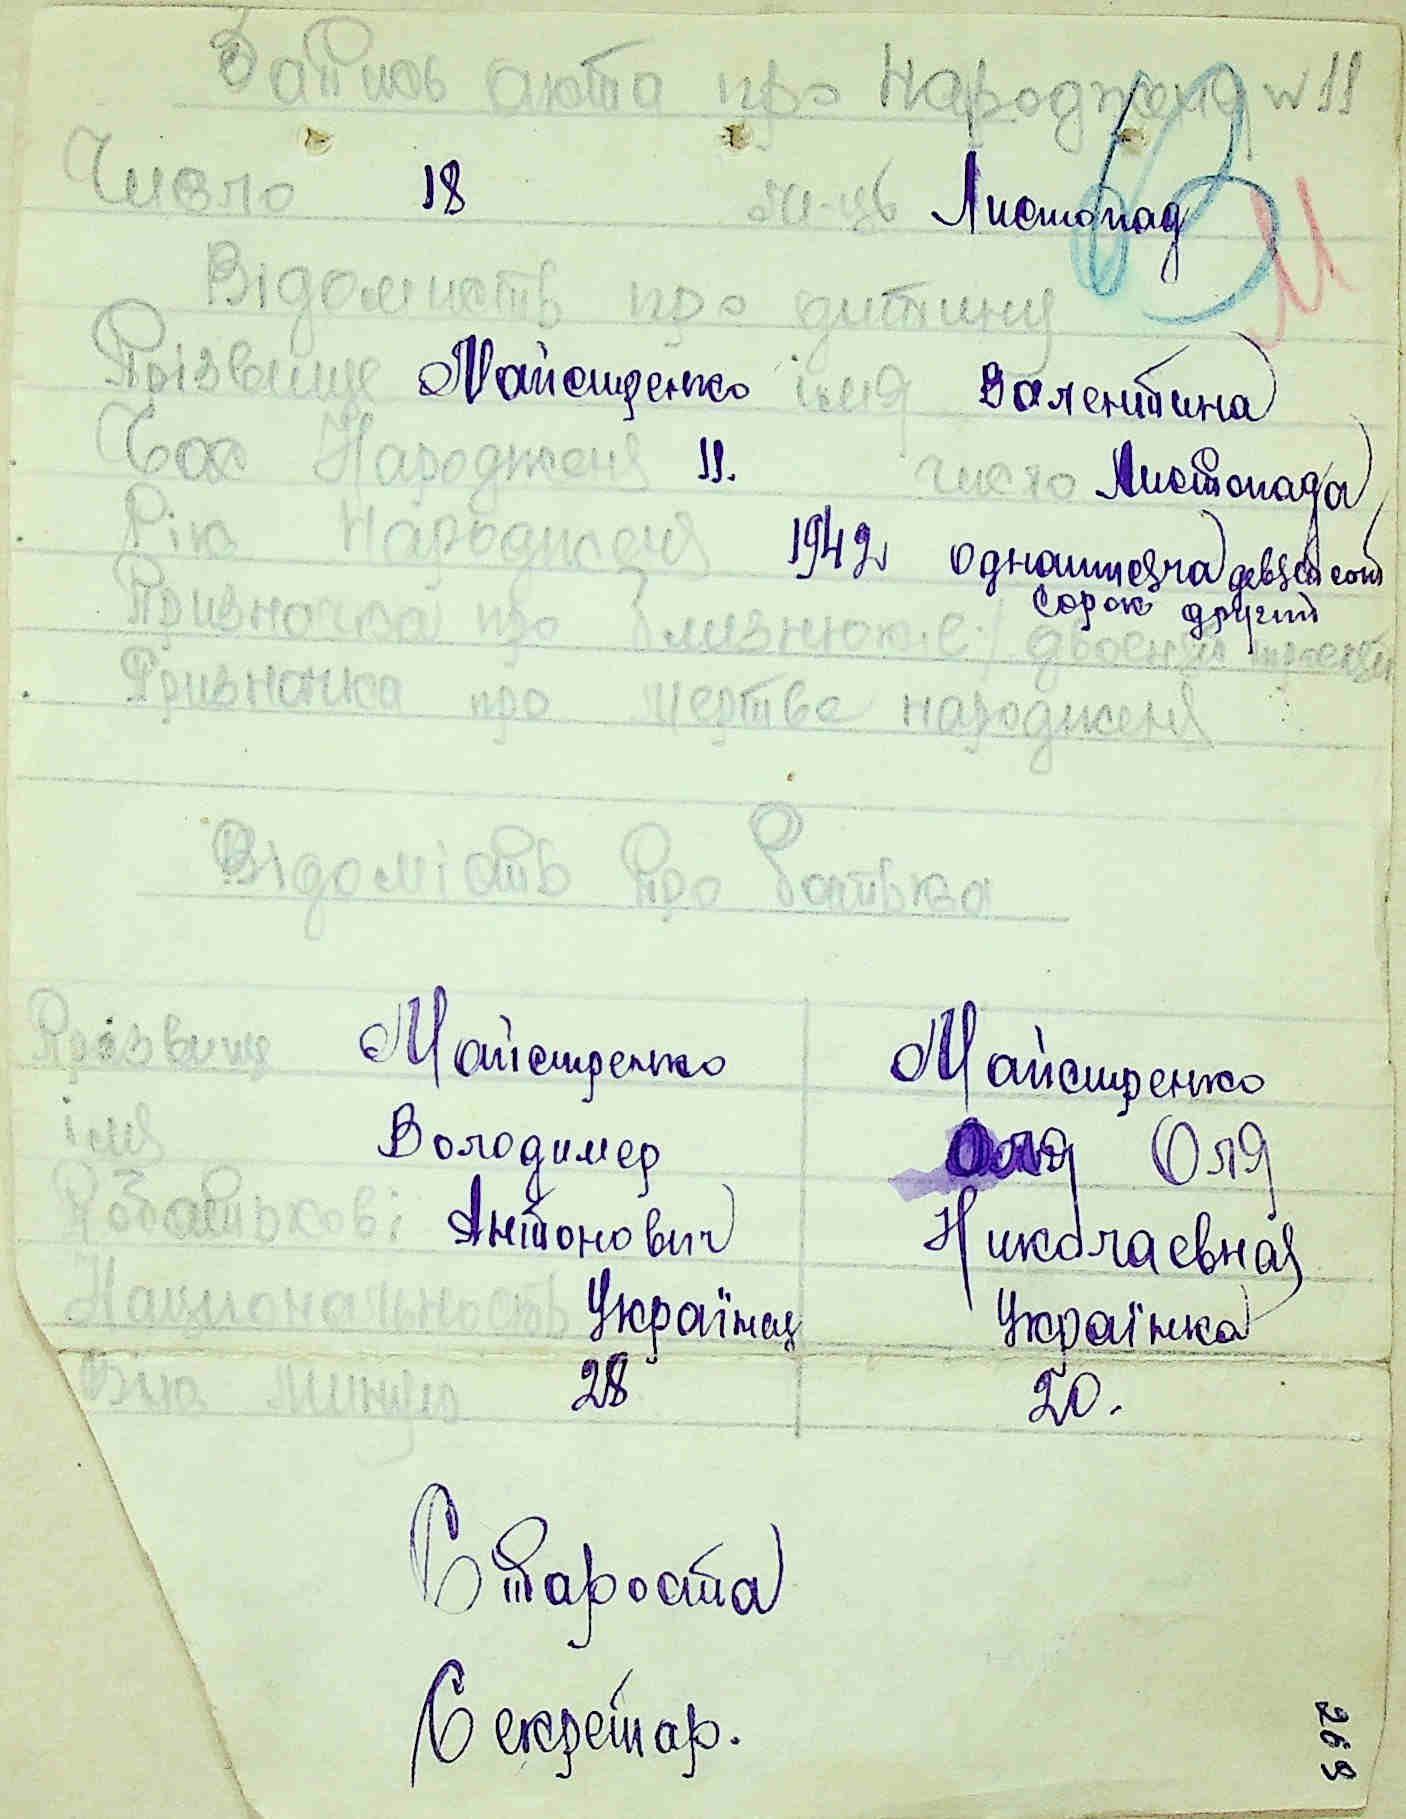 Запись акта про Народженя № 11
Число 18 м-ць Листопад
Відомисть про дитину
Прізвище Майстренко імя Валентина
Час Народженя 11. число Листопада
Рік Народженя 1942 однатисяча девятсот
сорок другий
Призначка про близнюків двоєнят троєнят
Призначка про мертве народженя
Відомість про батька
Прізвище Майстренко Майстренко
імя Володимер Оля Оля
Побатькові Антонович Николаевная
Национальность Українец Українка
Вік минул 28 20.
Староста
Секретар.
269